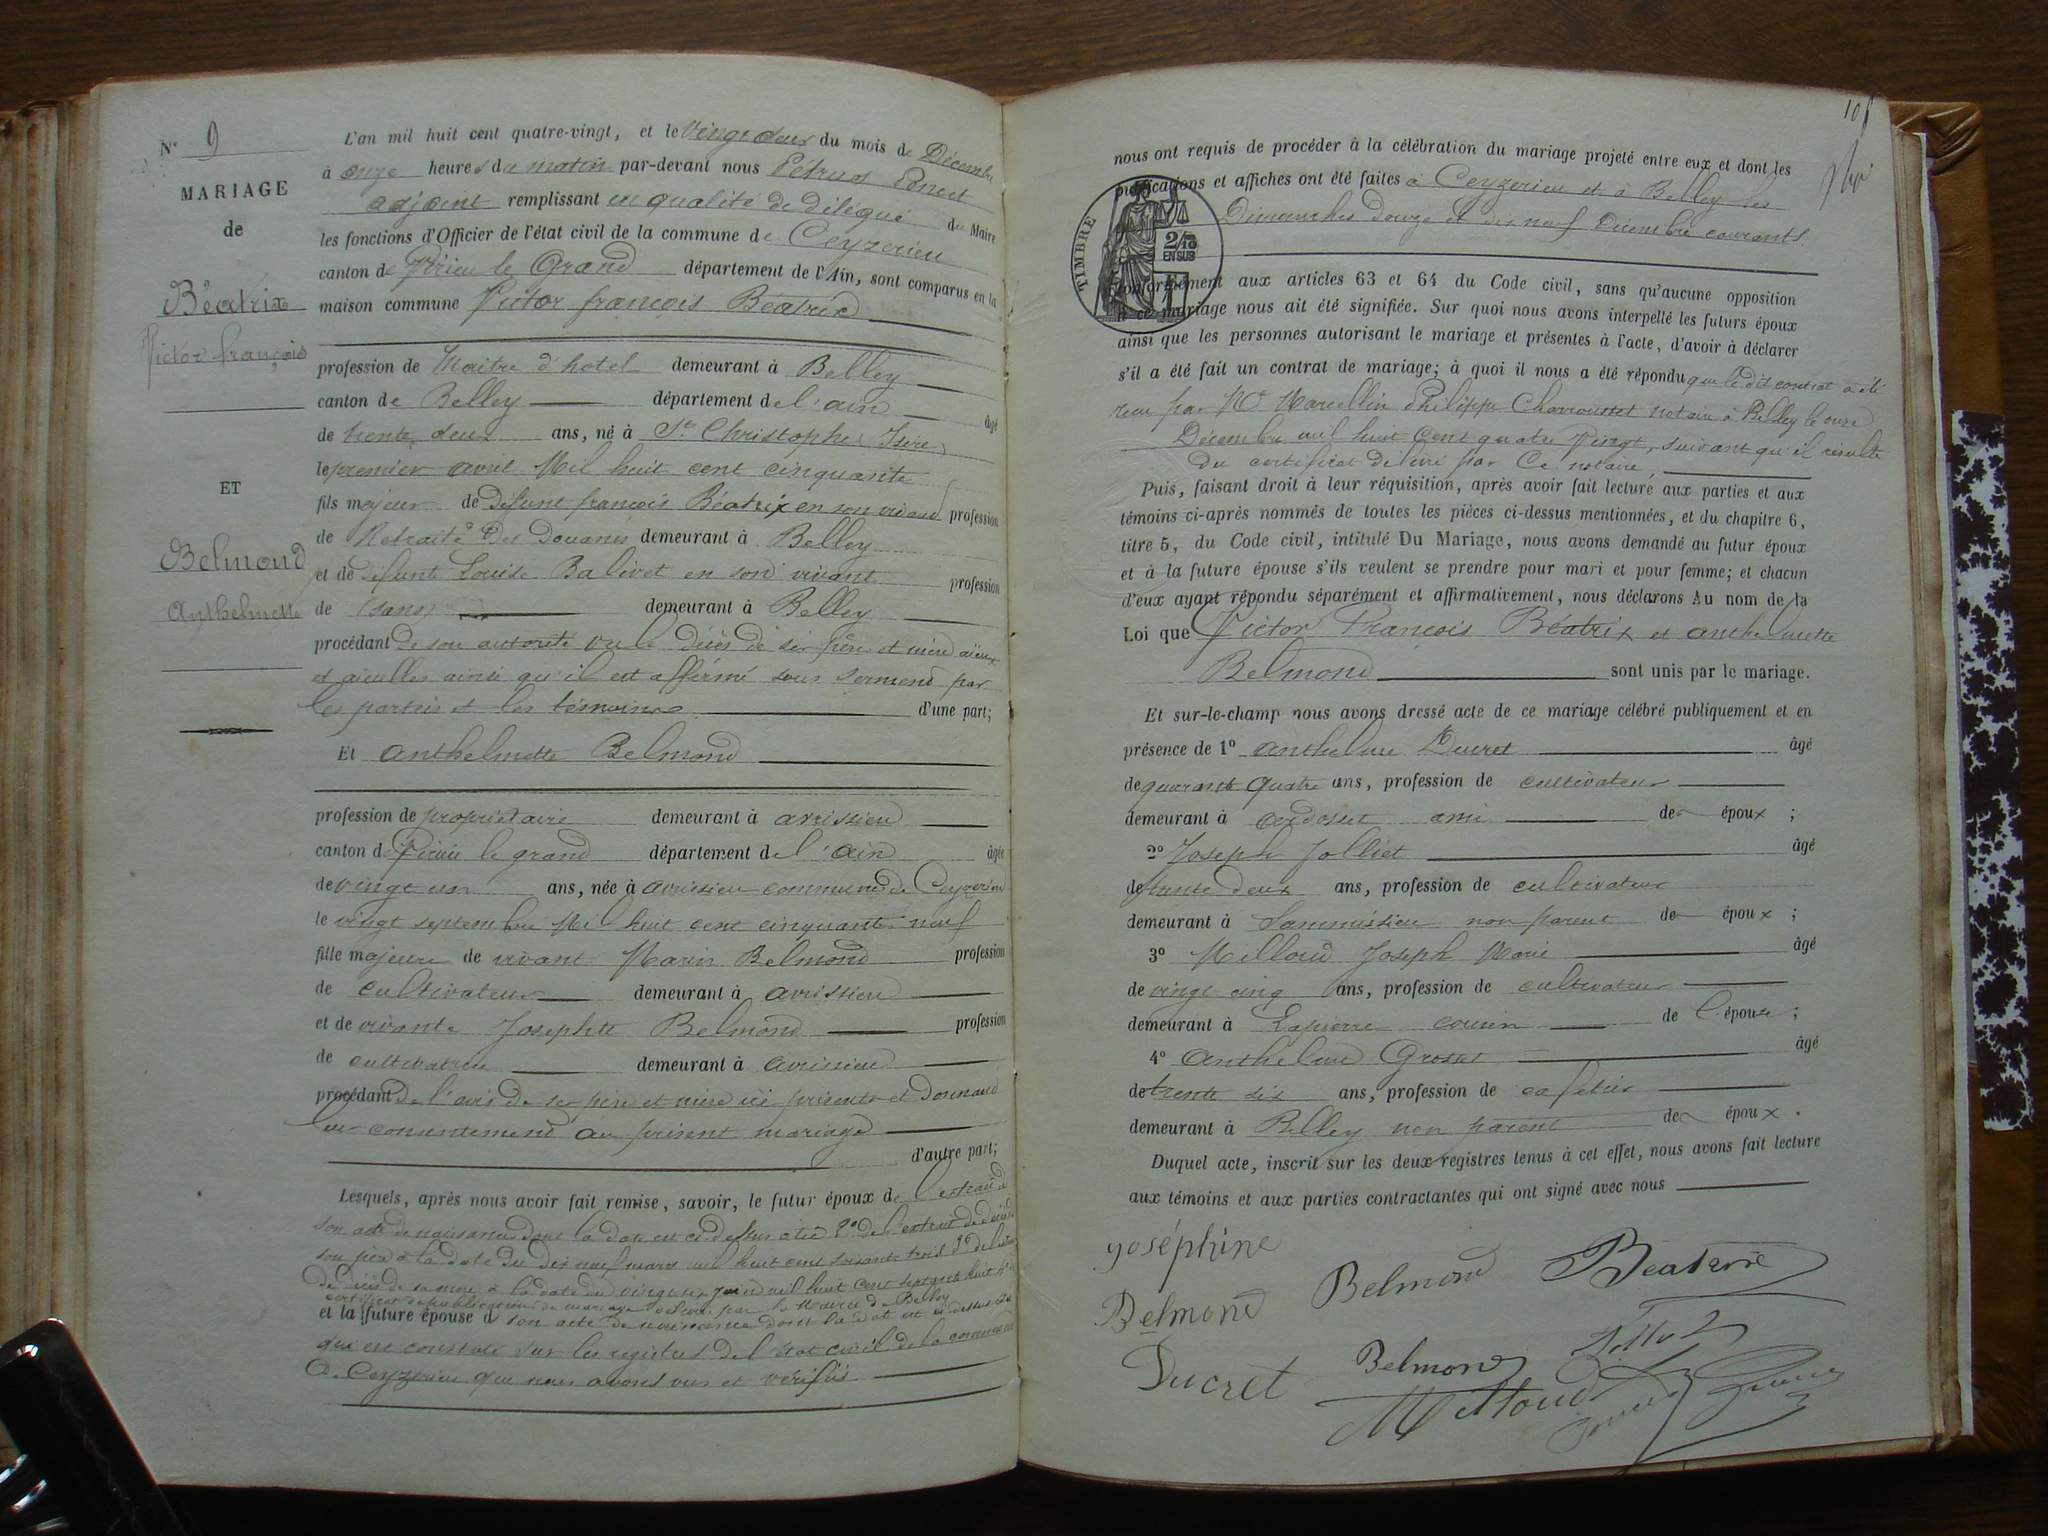 N° 9
MARIAGE
de
Béatrix
Victor françois
ET
Belmond
Anthelmette
L'an mil huit cent quatre-vingt, et le vingt deux du mois de Décembre
à onze heures du matin par-devant nous Pétrus Poncet
adjoint remplissant en qualité de délégué du Maire
les fonctions d'Officier de l'état civil de la commune de Ceyzerieu
canton de Virieu le Grand département de l'Ain, sont comparus en la
maison commune Victor françois Béatrix
profession de Maitre d'hotel demeurant à Belley
canton de Belley département de l'ain âgé
de trente deux ans, né à St Christophe (Isère)
le premier avril Mil huit cent cinquante
fils majeur de défunt françois Béatrix en son vivant profession
de Retraité des Douanes demeurant à Belley
et de défunte Louise Balivet en son vivant profession
de (sans) demeurant à Belley
procédant de son autorité vu le décès de ses père et mère aïeux
et aïeulles ainsi qu'il est afférmé sous serment par
les parties et les témoins d'une part;
Et anthelmette Belmond
profession de propriétaire demeurant à avrissieu
canton de Virieu le grand département de l'ain âgée
de vingt un ans, née à avrissieu commune de Ceyzerieu
le vingt septembre Mil huit cent cinquante neuf
fille majeure de vivant Marin Belmond profession
de cultivateur demeurant à avrissieu
et de vivante Josephte Belmond profession
de cultivatrice demeurant à avrissieu
procédant de l'avis de ses père et mère ici présents et donnant
leur consentement au présent mariage
d'autre part;
Lesquels, après nous avoir fait remise, savoir, le futur époux de l'extrait de
son acte de naissance dont la date est ci dessus 2° de l'extrait de décès de
son père à la date du dix neuf mars mil huit cent soixante trois 3° de
de décès de sa mère à la date du vingt six juin mil huit cent septante huit 4°
certificat de publication de mariage délivré par la Mairie de Belley
et la future épouse de son acte de naissance dont la date est ci dessus
qui est constaté sur les registres de l'état civil de la commune
de Ceyzerieu que nous avons vus et vérifiés
nous ont requis de procéder à la célébration du mariage projeté entre eux et dont les
publications et affiches ont été faites à Ceyzerieu et à Belley les
Dimanches douze et dix neuf Décembre courants.
TIMBRE
2/10
EN SUS
conformément aux articles 63 et 64 du Code civil, sans qu'aucune opposition
à ce mariage nous ait été signifiée. Sur quoi nous avons interpellé les futurs époux
ainsi que les personnes autorisant le mariage et présentes à l'acte, d'avoir à déclarer
s'il a été fait un contrat de mariage; à quoi il nous a été répondu que le dit contrat a été
reçu par Me Marcellin Philippe Charrousset notaire à Belley le onze
Décembre mil huit cent quatre vingt, suivant qu'il résulte
du certificat délivré par ce notaire,
Puis, faisant droit à leur réquisition, après avoir fait lecture aux parties et aux
témoins ci-après nommés de toutes les pièces ci-dessus mentionnées, et du chapitre 6,
titre 5, du Code civil, intitulé Du Mariage, nous avons demandé au futur époux
et à la future épouse s'ils veulent se prendre pour mari et pour femme; et chacun
d'eux ayant répondu séparément et affirmativement, nous déclarons Au nom de la
Loi que Victor François Béatrix et anthelmette
Belmond sont unis par le mariage.
Et sur-le-champ nous avons dressé acte de ce mariage célébré publiquement et en
présence de 1° anthelme Ducret âgé
de quarante quatre ans, profession de cultivateur
demeurant à ami de époux ;
2° Joseph Jolliet âgé
de trente deux ans, profession de cultivateur
demeurant à non parent de époux ;
3° Milloud Joseph Marie âgé
de vingt cinq ans, profession de cultivateur
demeurant à Lapierre cousin de l'épouse ;
4° anthelme Grosset âgé
de trente six ans, profession de cafetier
demeurant à Belley non parent de époux .
Duquel acte, inscrit sur les deux registres tenus à cet effet, nous avons fait lecture
aux témoins et aux parties contractantes qui ont signé avec nous
Joséphine
Belmond Belmond Beatrix
Ducret Belmond
Milloud